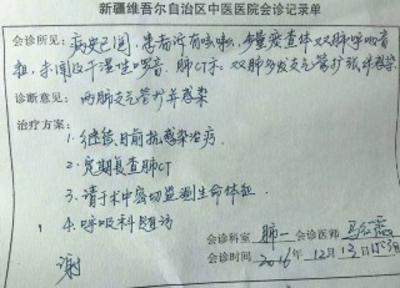 新疆维吾尔自治区中医医院会诊记录单
会诊所见：病史已阅，患者诉有咳嗽，少量痰查体双肺呼吸音
粗，未闻及干湿性啰音。肺CT示：双肺多发支气管扩张伴感染
诊断意见：两肺支气管扩并感染
治疗方案：
1.继续目前抗感染治疗
2.定期复查肺CT
3.请于术中密切监测生命体征
4.呼吸科随诊
谢
会诊科室 肺一 会诊医师
会诊时间 2016年12月13日